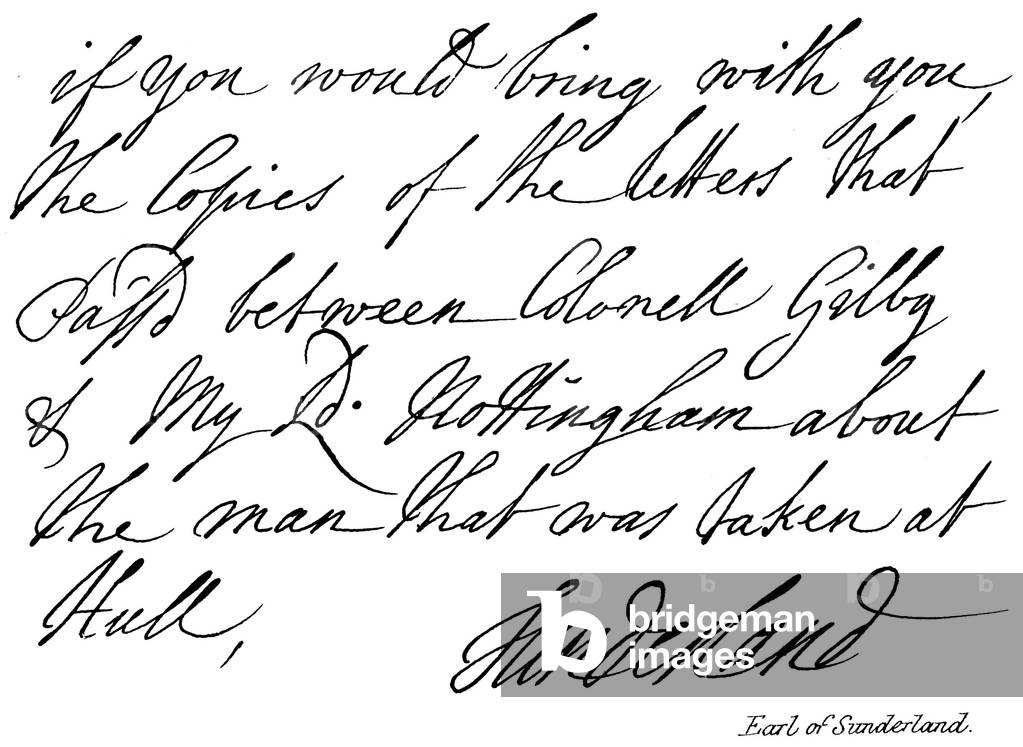 if you would bring with you,
the Copies of the letters that
Pass'd between Colonell Gilby
& My Ld. Nottingham about
the man that was taken at
Hull,
Sunderland
bridgeman
images
Earl of Sunderland.